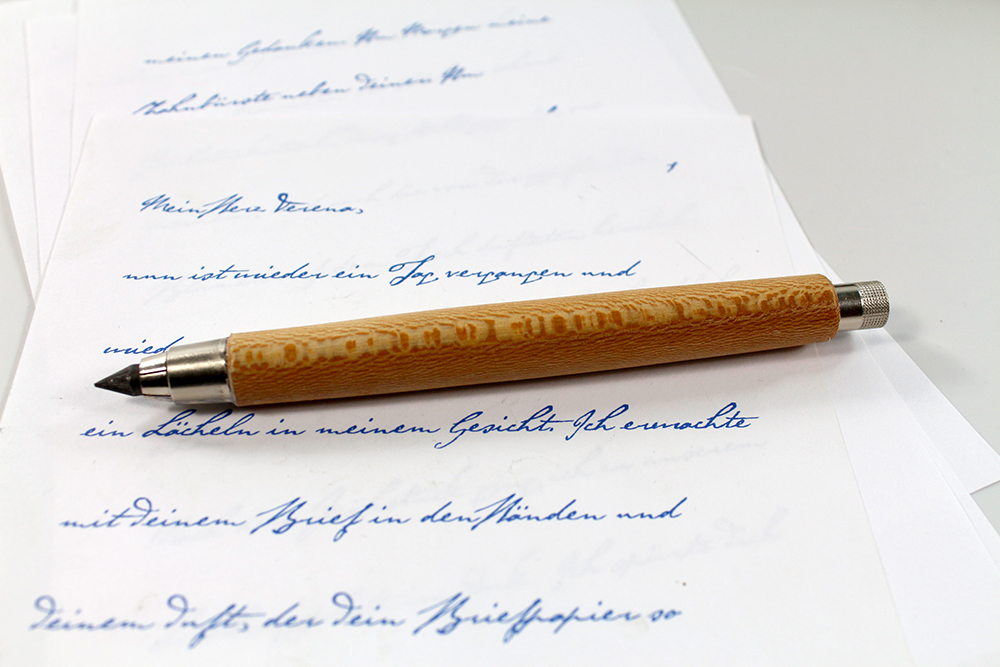 meinen Gedanken. Am Morgen meine
Zahnbürste neben deiner. Am
Mein Herz Verena,
nun ist wieder ein Tag vergangen und
wied
ein Lächeln in meinem Gesicht. Ich erwachte
mit deinem Brief in den Händen und
deinem Duft, der dein Briefpapier so